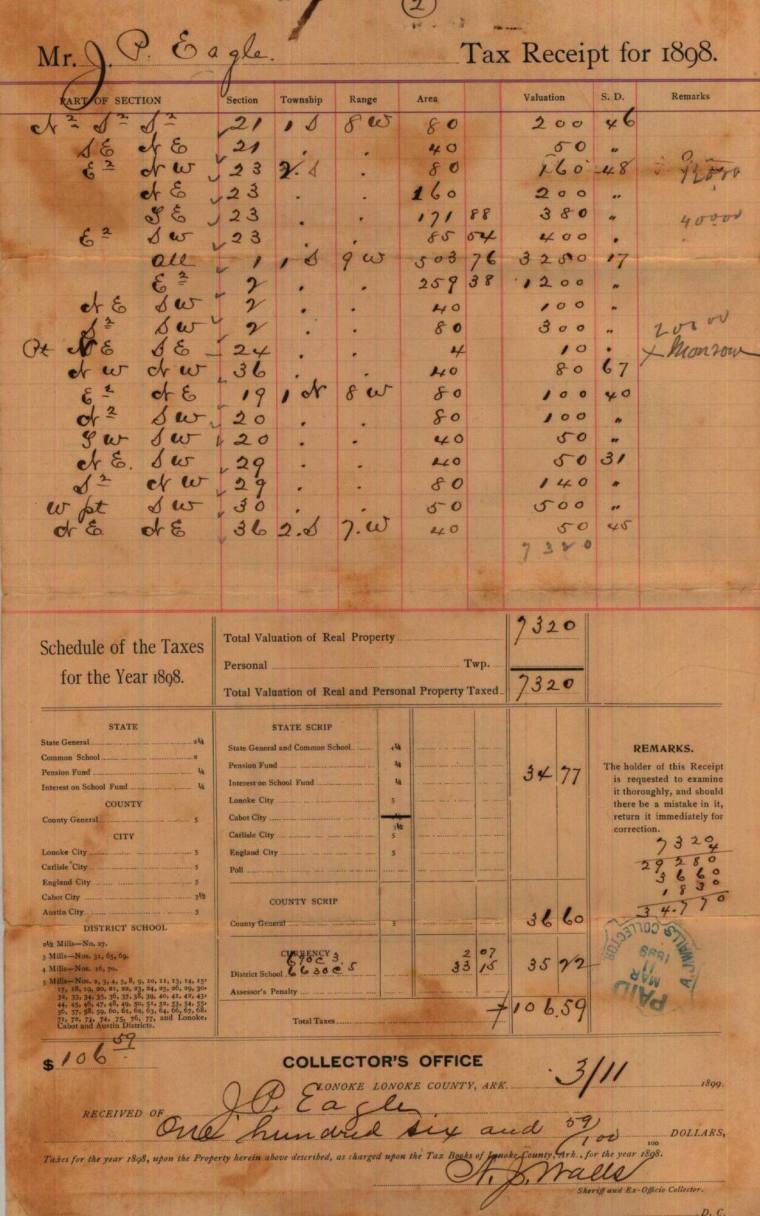 2
Mr. J. P. Eagle. Tax Receipt for 1898.
PART OF SECTION Section Township Range Area Valuation S. D. Remarks
N 2 S 2 S 2 21 1 S 8 W 80 200 46
SE NE 21 . . 40 50 "
E 2 NW 23 2. S . 80 160 48
NE 23 . . 160 200 "
SE 23 . . 171 88 380 " 40000
E 2 SW 23 . . 85 54 400 .
all 1 1 S 9 W 503 76 3250 17
E 2 2 . . 259 38 1200 "
NE SW 2 . . 40 100 "
S 2 SW 2 . . 80 300 " 20000
Pt NE SE 24 . . 4 10 . x Monrow
NW NW 36 . . 40 80 67
E 2 NE 19 1 N 8 W 80 100 40
N 2 SW 20 . . 80 100 "
SW SW 20 . . 40 50 "
NE. SW 29 . . 40 50 31
S 2 NW 29 . . 80 140 "
W pt SW 30 . . 50 500 "
NE NE 36 2. S 7. W 40 50 45
7320
Schedule of the Taxes
for the Year 1898.
Total Valuation of Real Property 7320
Personal Twp.
Total Valuation of Real and Personal Property Taxed 7320
STATE
State General 2¼
Common School 2
Pension Fund ¼
Interest on School Fund ¼
COUNTY
County General 5
CITY
Lonoke City 5
Carlisle City 5
England City 5
Cabot City 7½
Austin City 5
DISTRICT SCHOOL
2½ Mills—No. 27.
3 Mills—Nos. 31, 65, 69.
4 Mills—Nos. 16, 70.
5 Mills—Nos. 2, 3, 4, 5, 8, 9, 10, 11, 13, 14, 15,
17, 18, 19, 20, 21, 22, 23, 24, 25, 26, 29, 30,
32, 33, 34, 35, 36, 37, 38, 39, 40, 41, 42, 43,
44, 45, 46, 47, 48, 49, 50, 51, 52, 53, 54, 55,
56, 57, 58, 59, 60, 61, 62, 63, 64, 66, 67, 68,
71, 72, 74, 75, 76, 77, and Lonoke,
Cabot and Austin Districts.
STATE SCRIP
State General and Common School 4¼
Pension Fund ¼ 34 77
Interest on School Fund ¼
Lonoke City 5
Cabot City 7½
Carlisle City 5
England City 5
Poll
COUNTY SCRIP
County General 5 36 60
CURRENCY
690 c 3 2 07
District School 6630 c 5 33 15 35 22
Assessor's Penalty
Total Taxes 106.59
REMARKS.
The holder of this Receipt
is requested to examine
it thoroughly, and should
there be a mistake in it,
return it immediately for
correction.
7320
4
29280
3660
1830
34.770
A. J. WALLS COLLECTOR.
PAID
MAR
11
1899
$ 106 59
COLLECTOR'S OFFICE
LONOKE LONOKE COUNTY, ARK. 3/11 1899.
RECEIVED OF J. P. Eagle
One hundred six and 59/100 100 DOLLARS,
Taxes for the year 1898, upon the Property herein above described, as charged upon the Tax Books of Lonoke County, Ark., for the year 1898.
A. J. Walls
Sheriff and Ex-Officio Collector.
D. C.